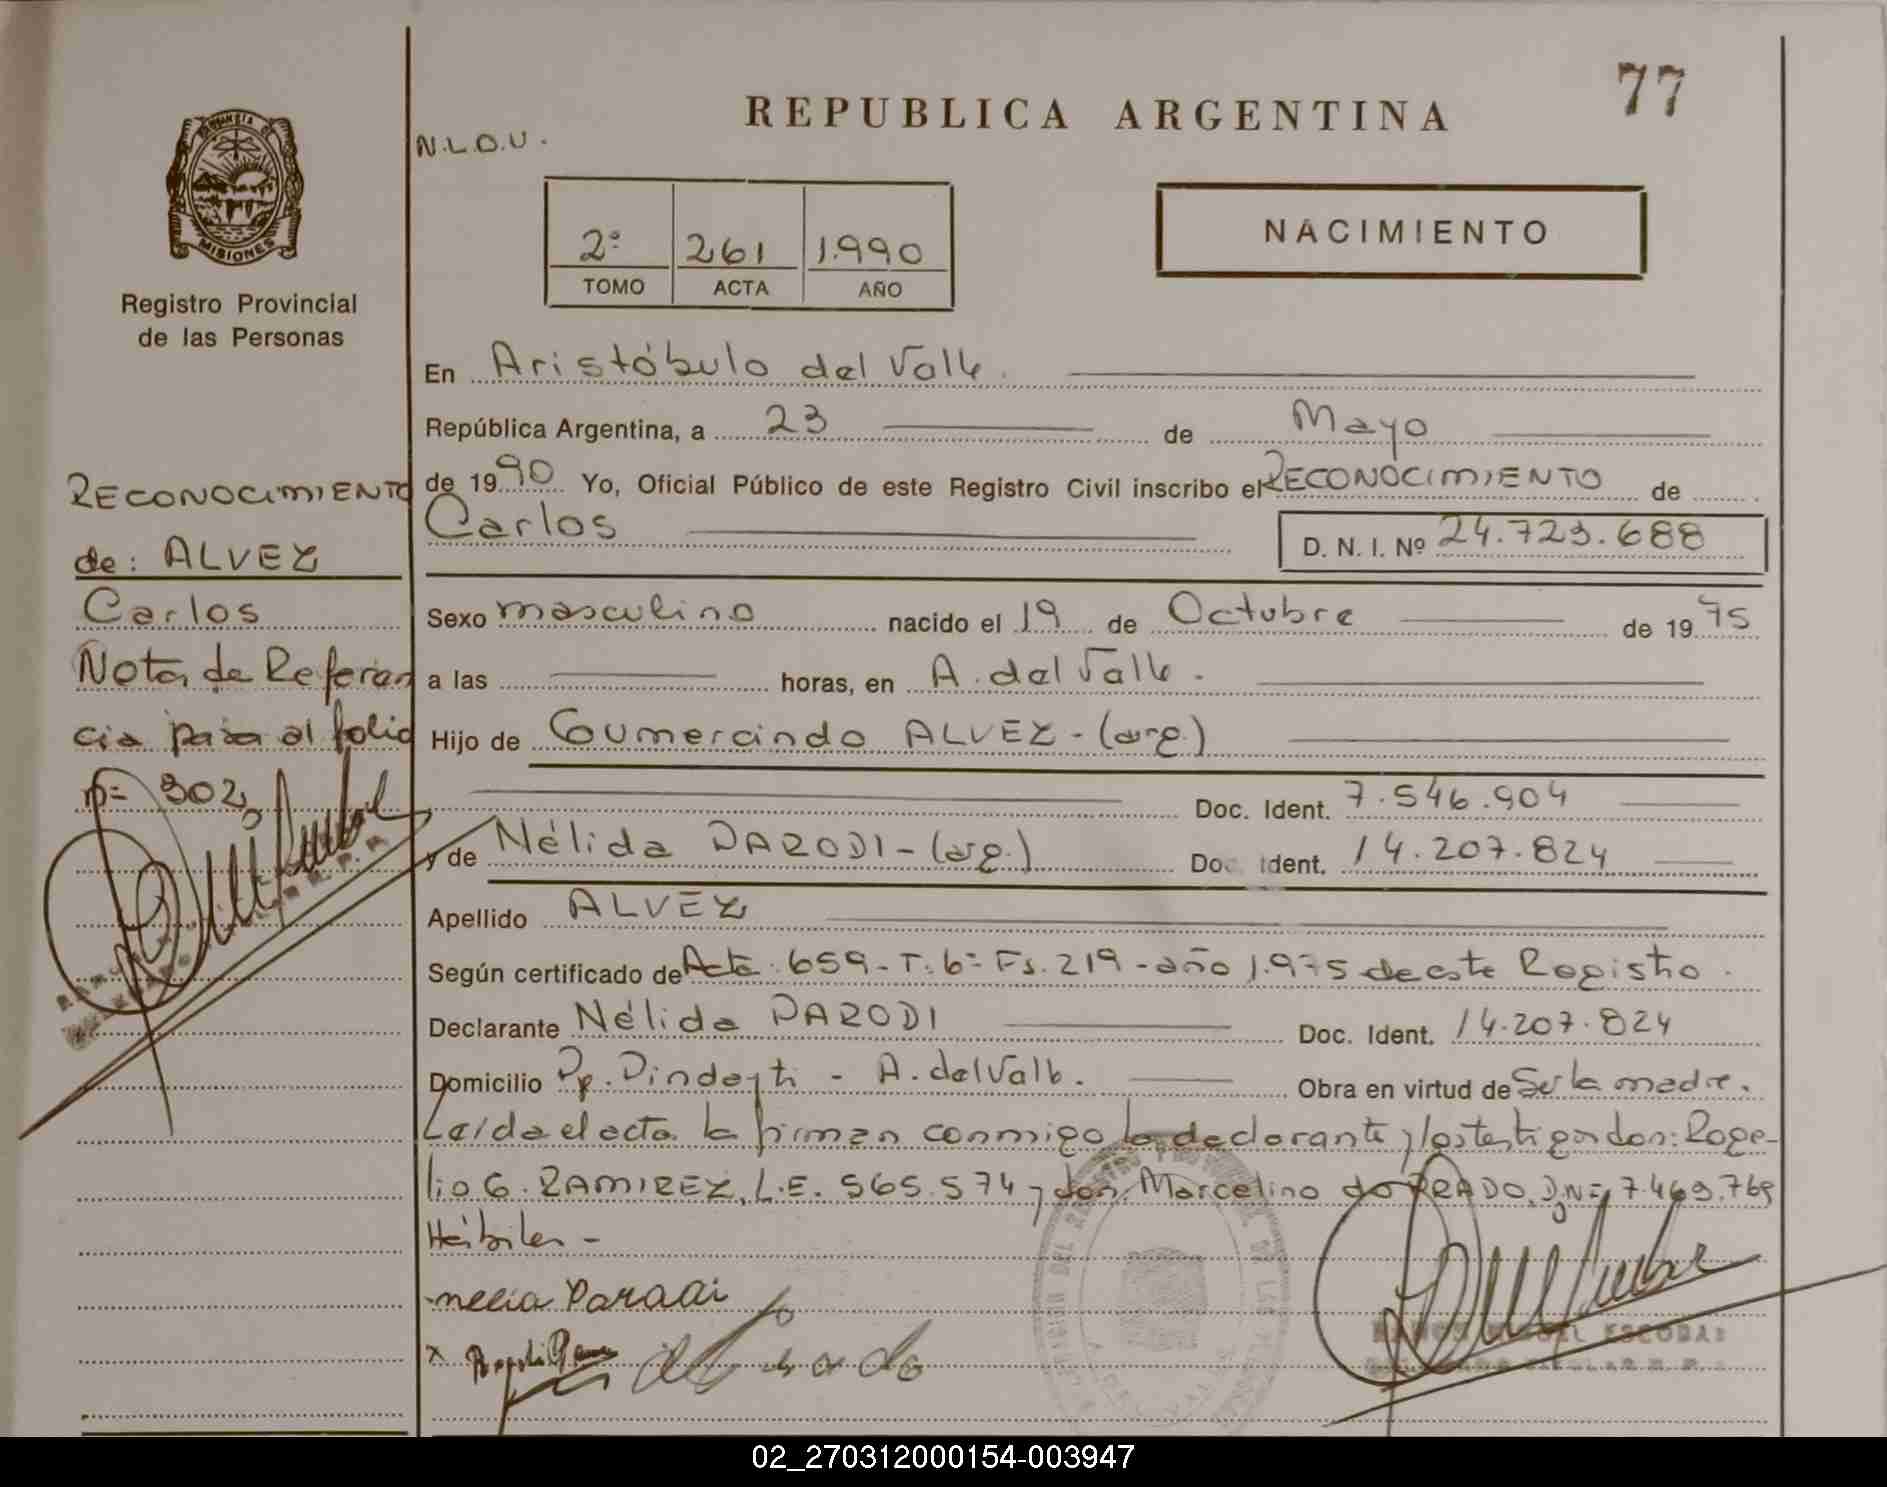 77
REPUBLICA ARGENTINA
N.L.O.U.
PROVINCIA DE
MISIONES
Registro Provincial
de las Personas
2º 261 1.990
TOMO ACTA AÑO
NACIMIENTO
RECONOCIMIENTO
de: ALVEZ
Carlos
Nota de Referen
cia pasa al folio
nº 302
En Aristóbulo del Valle.
República Argentina, a 23 de Mayo
de 1990 Yo, Oficial Público de este Registro Civil inscribo el RECONOCIMIENTO de
Carlos D. N. I. Nº 24.723.688
Sexo masculino nacido el 19 de Octubre de 1975
a las horas, en A. del Valle.
Hijo de Gumercindo ALVEZ - (arg.)
Doc. Ident. 7.546.904
y de Nélida PARODI - (arg.) Doc. Ident. 14.207.824
Apellido ALVEZ
Según certificado de Acta: 659 - T: 6º Fs. 219 - año 1.975 de este Registro.
Declarante Nélida PARODI Doc. Ident. 14.207.824
Domicilio Pindayti - A. del Valle. Obra en virtud de Ser la madre.
Leída el acta la firman conmigo la declarante y los testigos don: Roge-
lio G. RAMIREZ, L.E. 565.574 y don Marcelino do PRADO, D.N.I. 7.469.769
Hábiles -
RAMON MIGUEL ESCOBAR
02_270312000154-003947